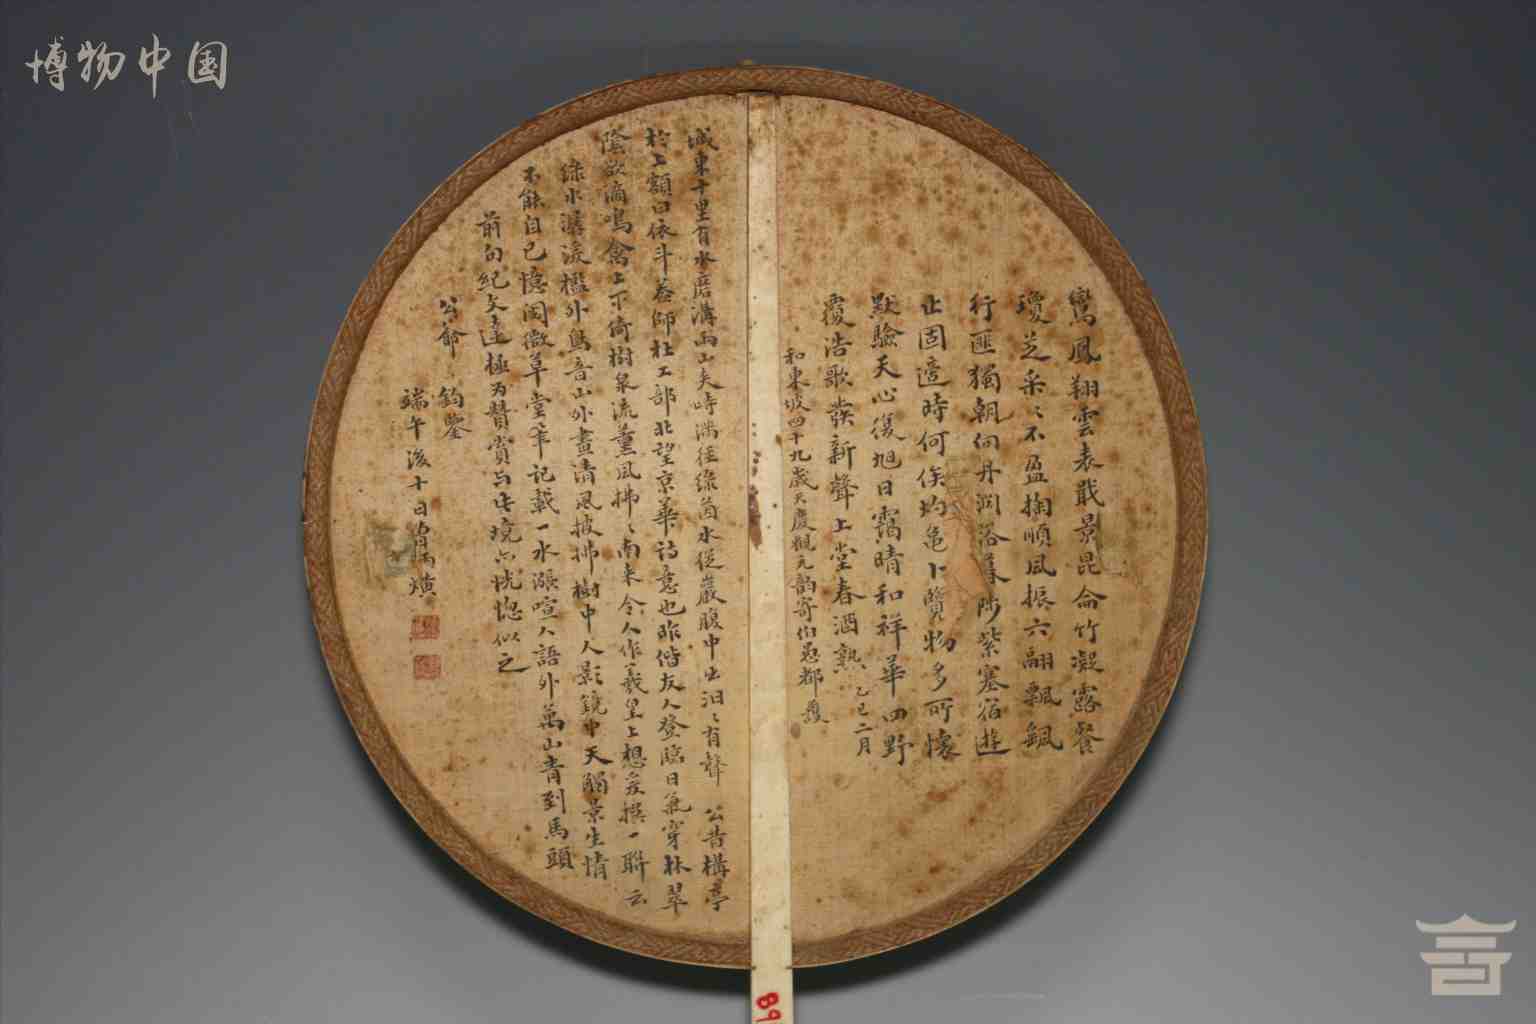 博物中国
鸞鳳翔雲表戢景昆侖竹凝露餐
瓊芝采々不盈掬順風振六翮飄飖
行匪獨朝向丹淵浴暮陟紫塞宿遊
止固適時何俟灼龜卜覽物多所懷
默驗天心復旭日靄晴和祥華四野
覆浩歌發新聲上堂春酒熟 乙巳二月
和東坡四十九歲天慶觀元韵寄伯愚都護
城東十里有水磨溝兩山夾峙滿徑綠茵水從巖腹中出汩々有聲 公昔構亭
於上額曰依斗蓋師杜工部北望京華詩意也昨偕友人登臨日氣穿林翠
陰欲滴鳴禽上下倚樹泉流薰風拂々南來令人作羲皇上想爰撰一聯云
綠水潺湲檻外鳥音山外畫清風披拂樹中人影鏡中天觸景生情
不能自已憶閱微草堂筆記載一水漲喧人語外萬山青到馬頭
前句紀文達極為贊賞與此境亦恍惚似之
公爺 鈞鑒
端午後十日 炳燐
B9